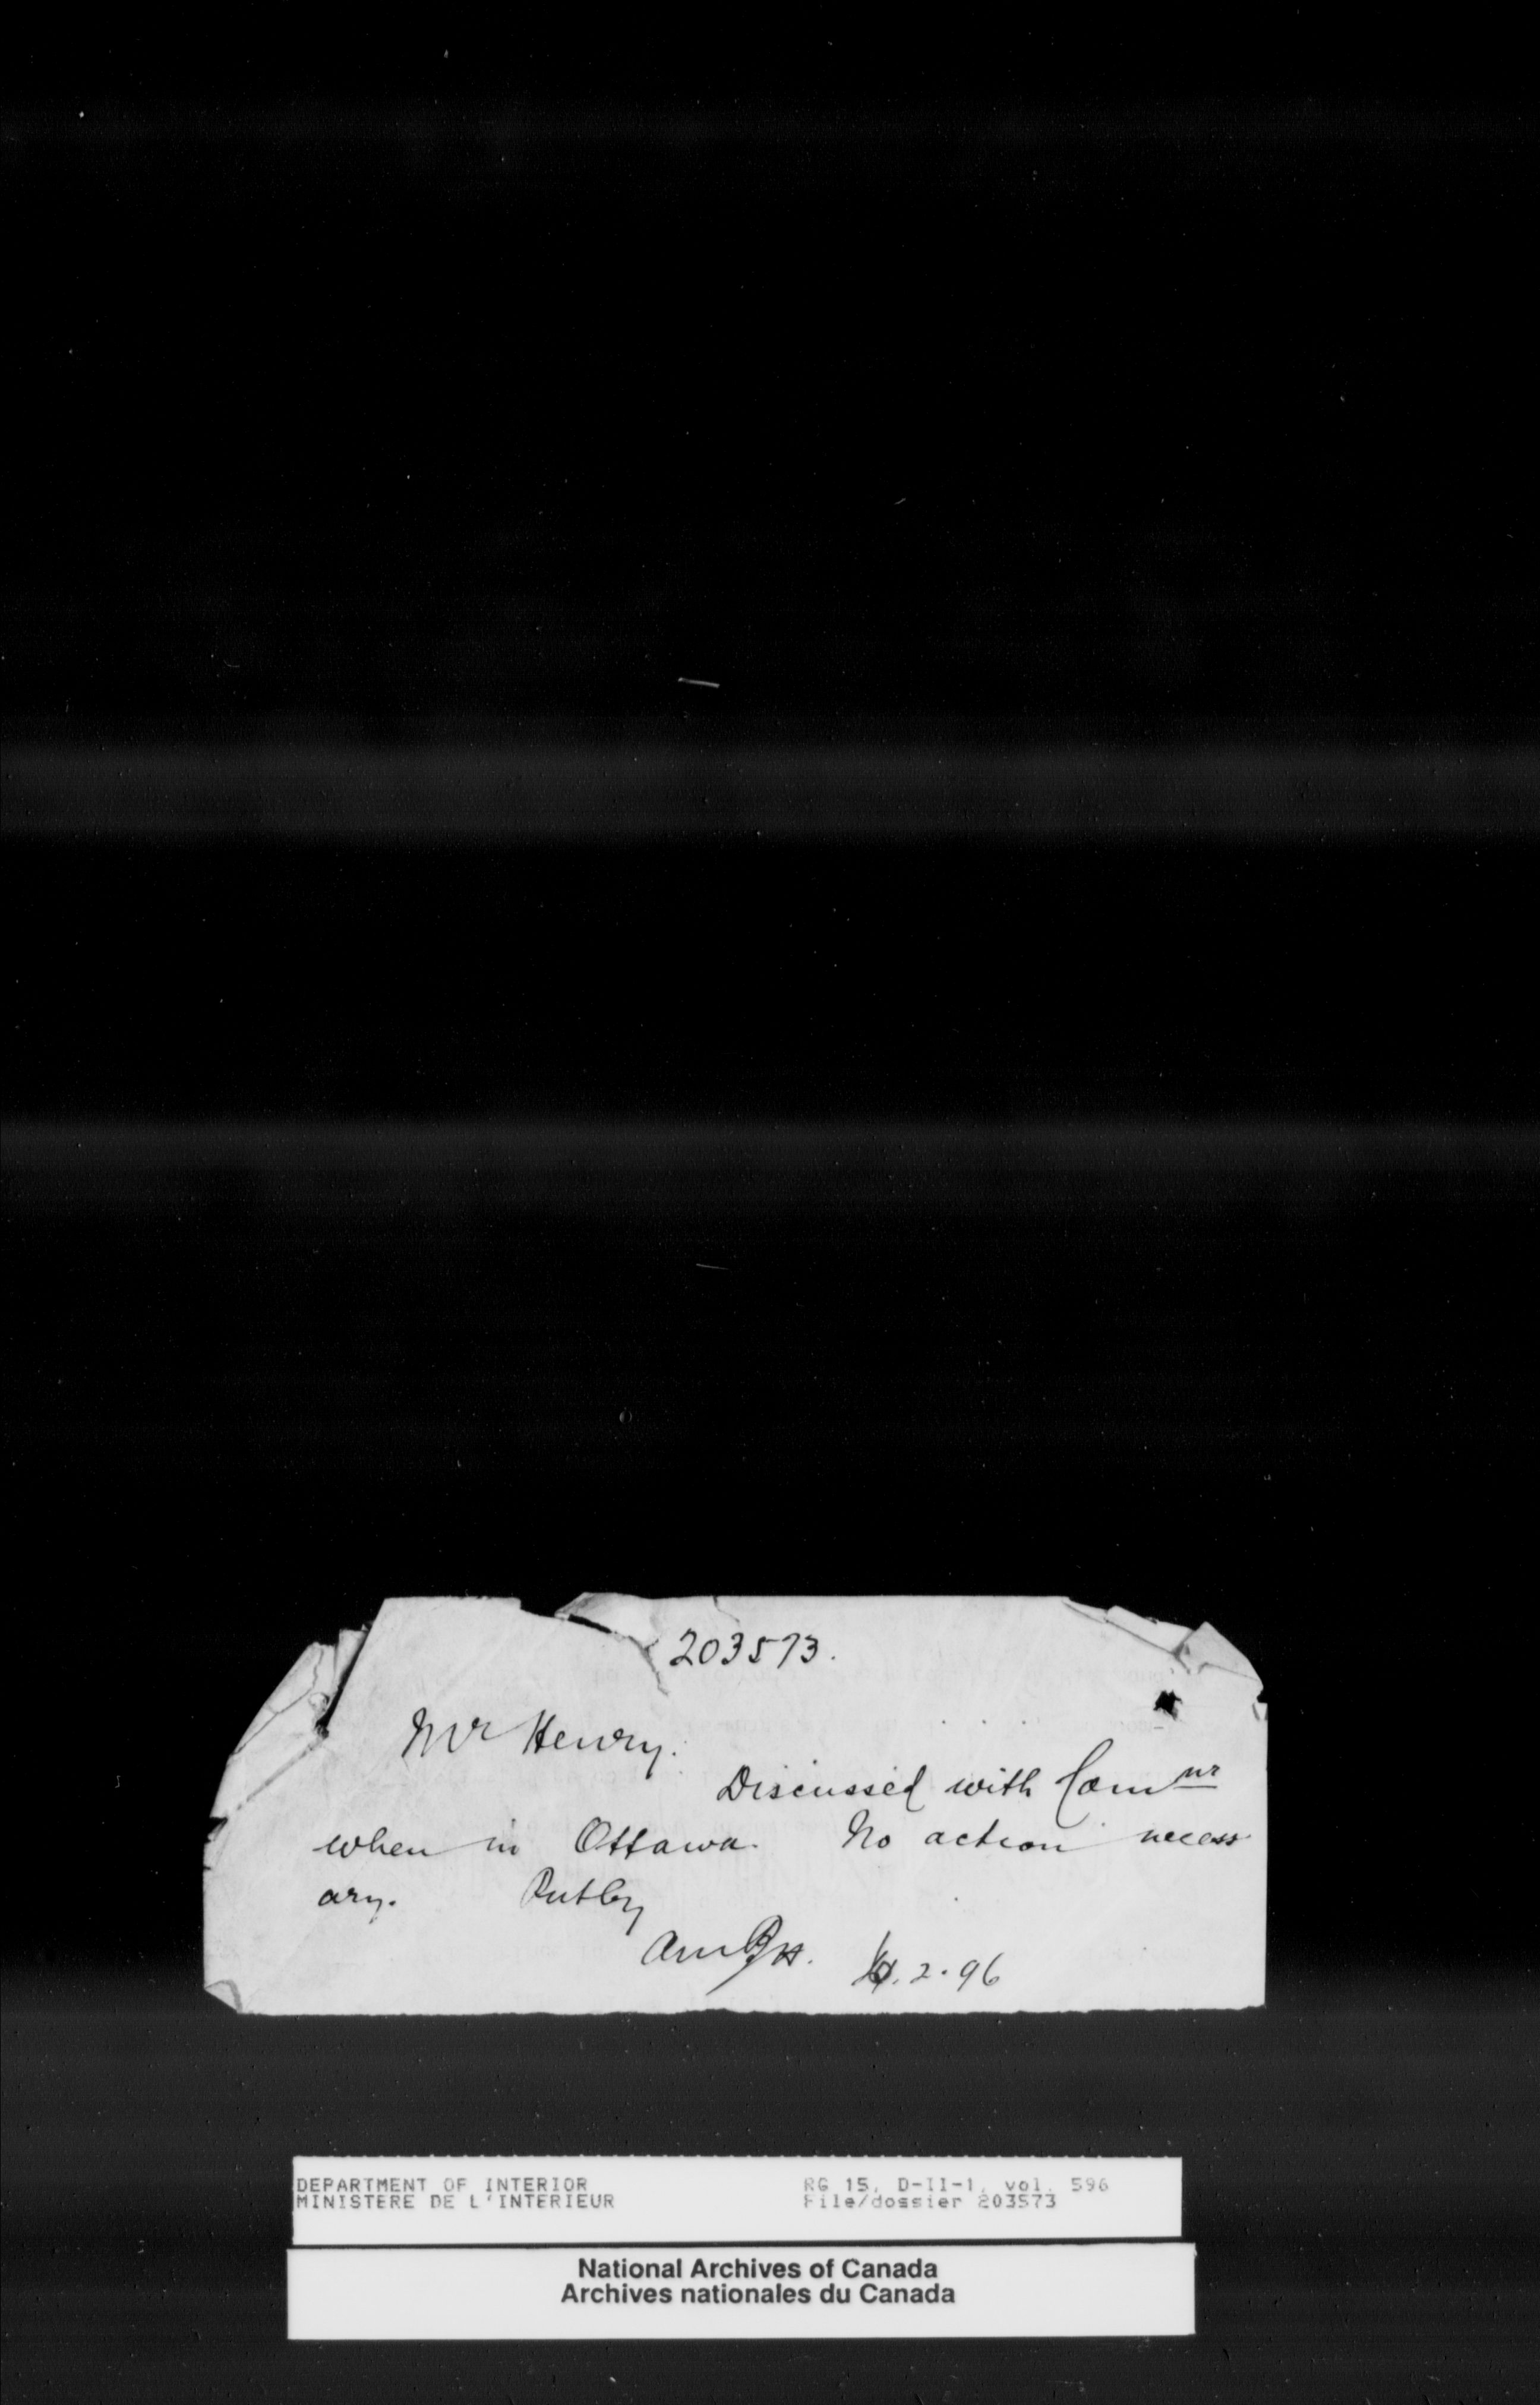 203573.
Mr Henry.
Discussed with Comnr
when in Ottawa. No action necess
ary. Putby
2.96
DEPARTMENT OF INTERIOR
MINISTERE DE L'INTERIEUR
RG 15, D-II-1, vol. 596
File/dossier 203573
National Archives of Canada
Archives nationales du Canada